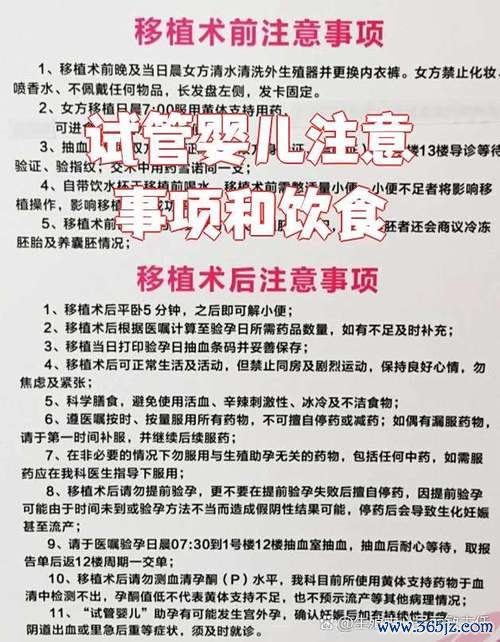 移植术前注意事项
1、移植术前晚及当日晨女方清水清洗外生殖器并更换内衣裤。女方禁止化妆、
喷香水、不佩戴任何物品，长发盘左侧，发卡固定。
2、女方移植日晨7:00服用黄体支持用药，
可进食
3、抽血
楼13楼导诊等待
验证、验指纹；交术中用药雪诺同一支；
试管婴儿注意
4、自带饮水杯于移植前喝水，移植术前需憋适量小便，小便不足者将影响移
植操作，影响移植
事项和饮食
5、移植术前
胚者还会商议冷冻
胚胎及养囊胚情况；
移植术后注意事项
1、移植术后平卧5分钟，之后即可解小便；
2、移植术后根据医嘱计算至验孕日所需药品数量，如有不足及时补充；
3、移植当日打印验孕日抽血条码并妥善保存；
4、移植术后可正常生活及活动，但禁止同房及剧烈运动，保持良好心情，勿
焦虑及紧张；
5、科学膳食，避免使用活血、辛辣刺激性、冰冷及不洁食物；
6、遵医嘱按时、按量服用所有药物，不可擅自停药或减药；如偶有漏服药物，
请于第一时间补服，并继续后续服药；
7、在非必要的情况下勿服用与生殖助孕无关的药物，包括任何中药，如需服
药应在我科医生指导下服用；
8、移植术后请勿提前验孕，更不要在提前验孕失败后擅自停药，因提前验孕
可能由于时间未到或验孕方法不当而造成假阴性结果可能，停药后会导致生化妊娠
甚至流产；
9、请于医嘱验孕日晨07:30到1号楼12楼抽血室抽血，抽血后耐心等待，取报
告单后返12楼周期一交单；
10、移植术后请勿测血清孕酮（P）水平，我科目前所使用黄体支持药物于血
清中检测不出，孕酮值低不代表黄体支持不足，也不预示流产等其他病理情况；
11、“试管婴儿”助孕有可能发生宫外孕，确认妊娠后如有持续性腹
阴道出血或里急后重等症状，须及时就诊；
www.365jz.com